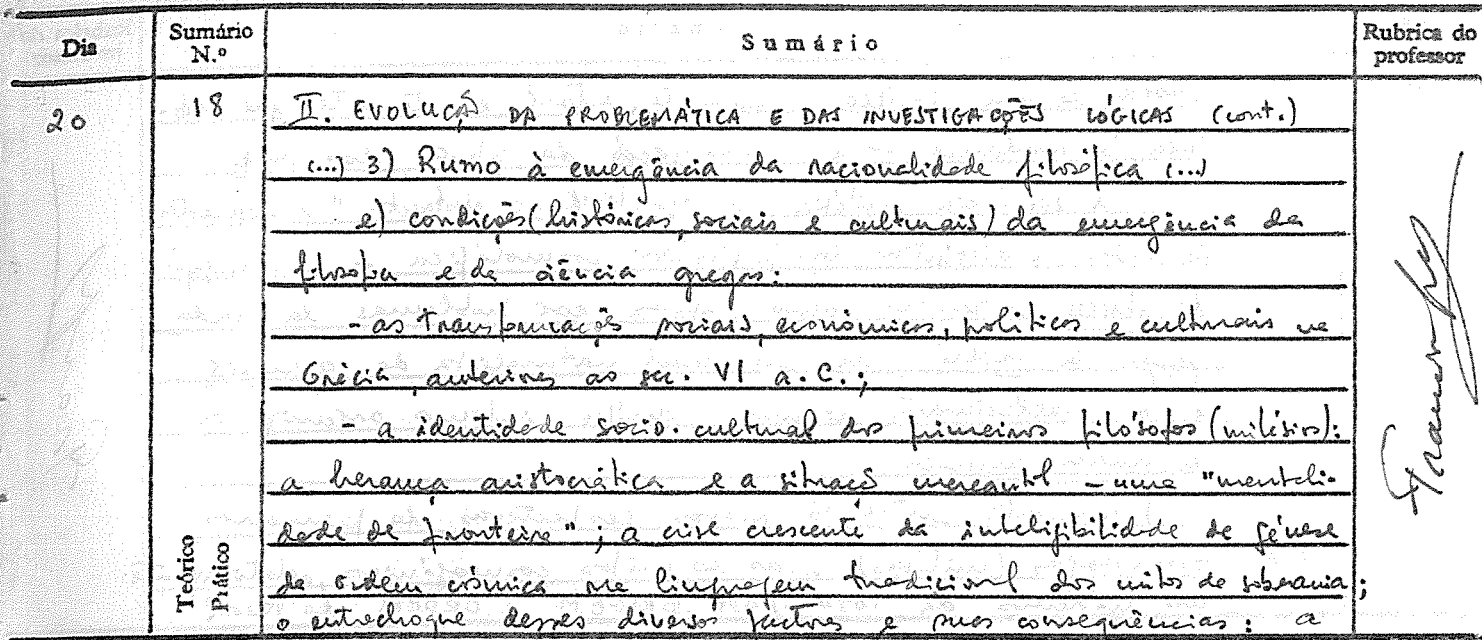 Dia Sumário N.º Sumário Rubrica do professor
20 18 II. EVOLUÇÃO DA PROBLEMÁTICA E DAS INVESTIGAÇÕES LÓGICAS (cont.)
(...) 3) Rumo à emergência da racionalidade filosófica (...)
e) condições (históricas, sociais e culturais) da emergência da
filosofia e da ciência gregas:
- as transformações sociais, económicas, políticas e culturais na
Grécia, anteriores ao séc. VI a.C.;
- a identidade socio-cultural dos primeiros filósofos (milésios):
a herança aristocrática e a situação mercantil - uma "mentali-
dade de fronteira"; a crise crescente da inteligibilidade de génese
da ordem cósmica na linguagem tradicional dos mitos de soberania;
o entrechoque desses diversos factores e suas consequências: a
Teórico
Prático